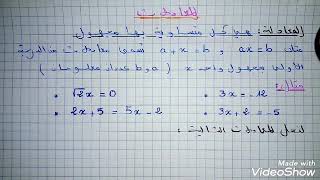 المعادلات
المعادلة: هي كل متساوية بها مجهول
مثال: ax = b و a + x = b تسمى معادلات من الدرجة
الأولى بمجهول واحد x ( a و b عددان معلومان )
مثال:
• √2x = 0 • 3x = -12
• 2x + 5 = 5x - 2 • 3x + 2 = -5
لنحل المعادلات التالية:
Made with
VideoShow